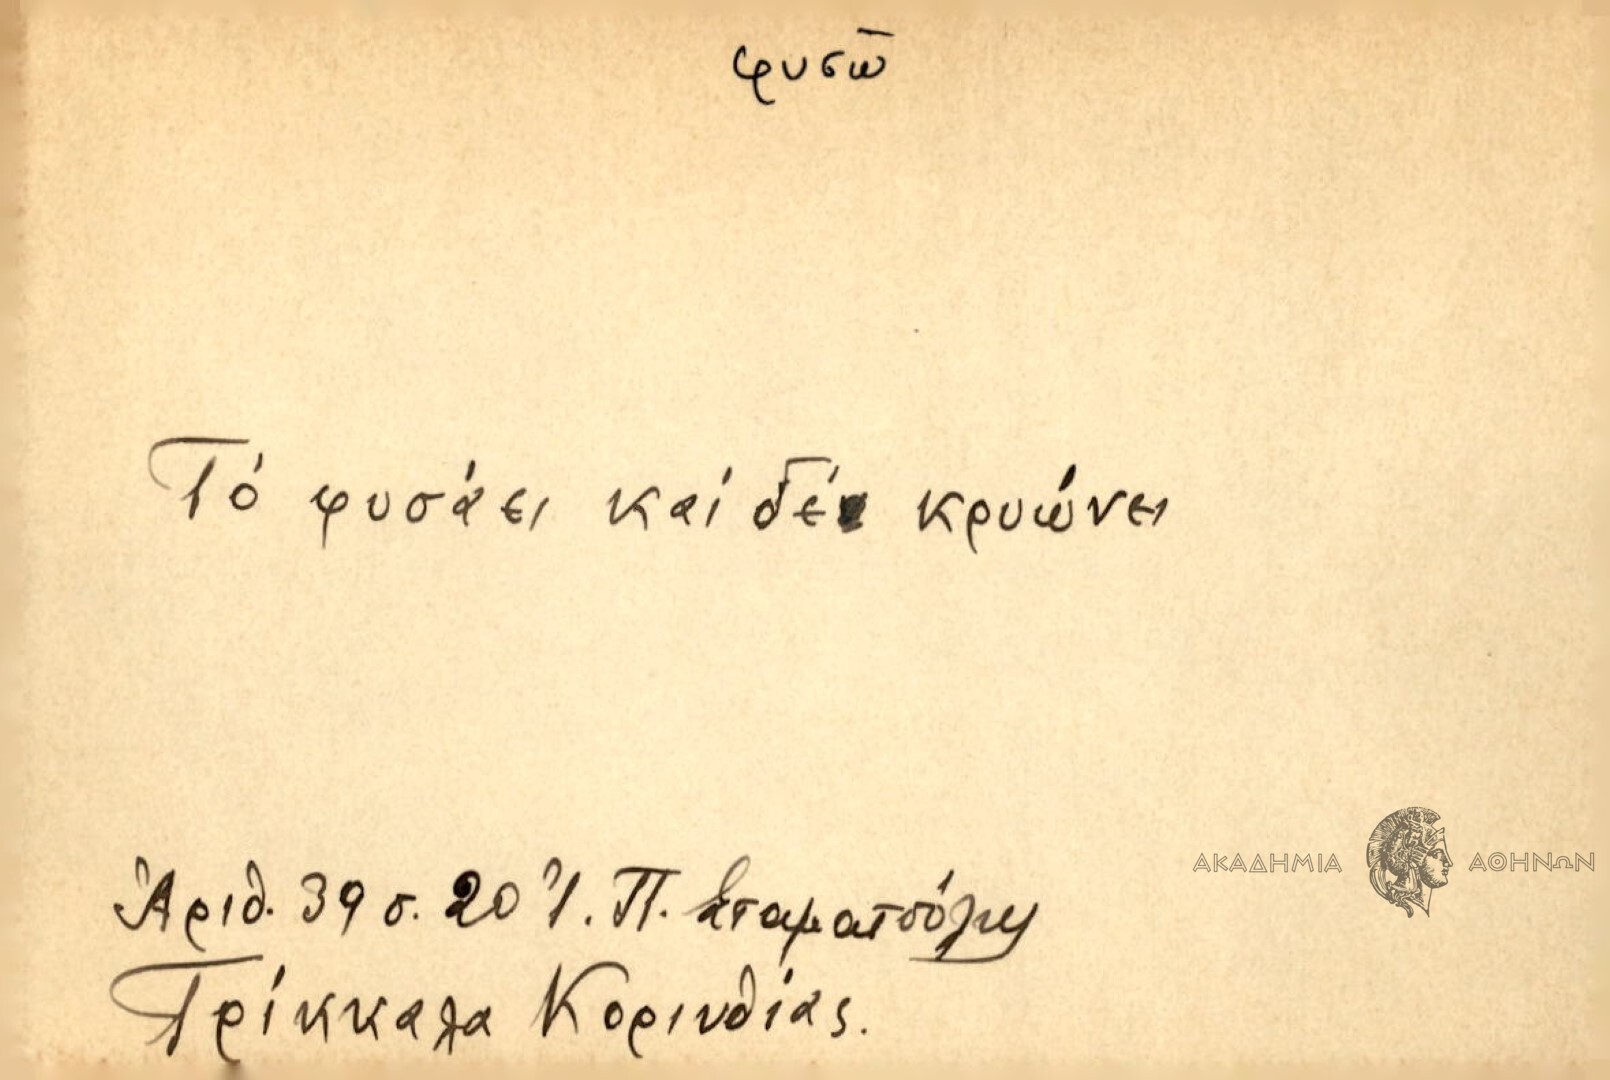 φυσῶ
Τό φυσάει καί δέν κρυώνει
ΑΚΑΔΗΜΙΑ ΑΘΗΝΩΝ
Ἀριθ. 39 σ. 20 Ἰ. Π.
Τρίκκαλα Κορινθίας.